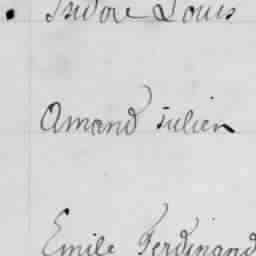 Isidore Louis
Amand iulien
Emile Ferdinand